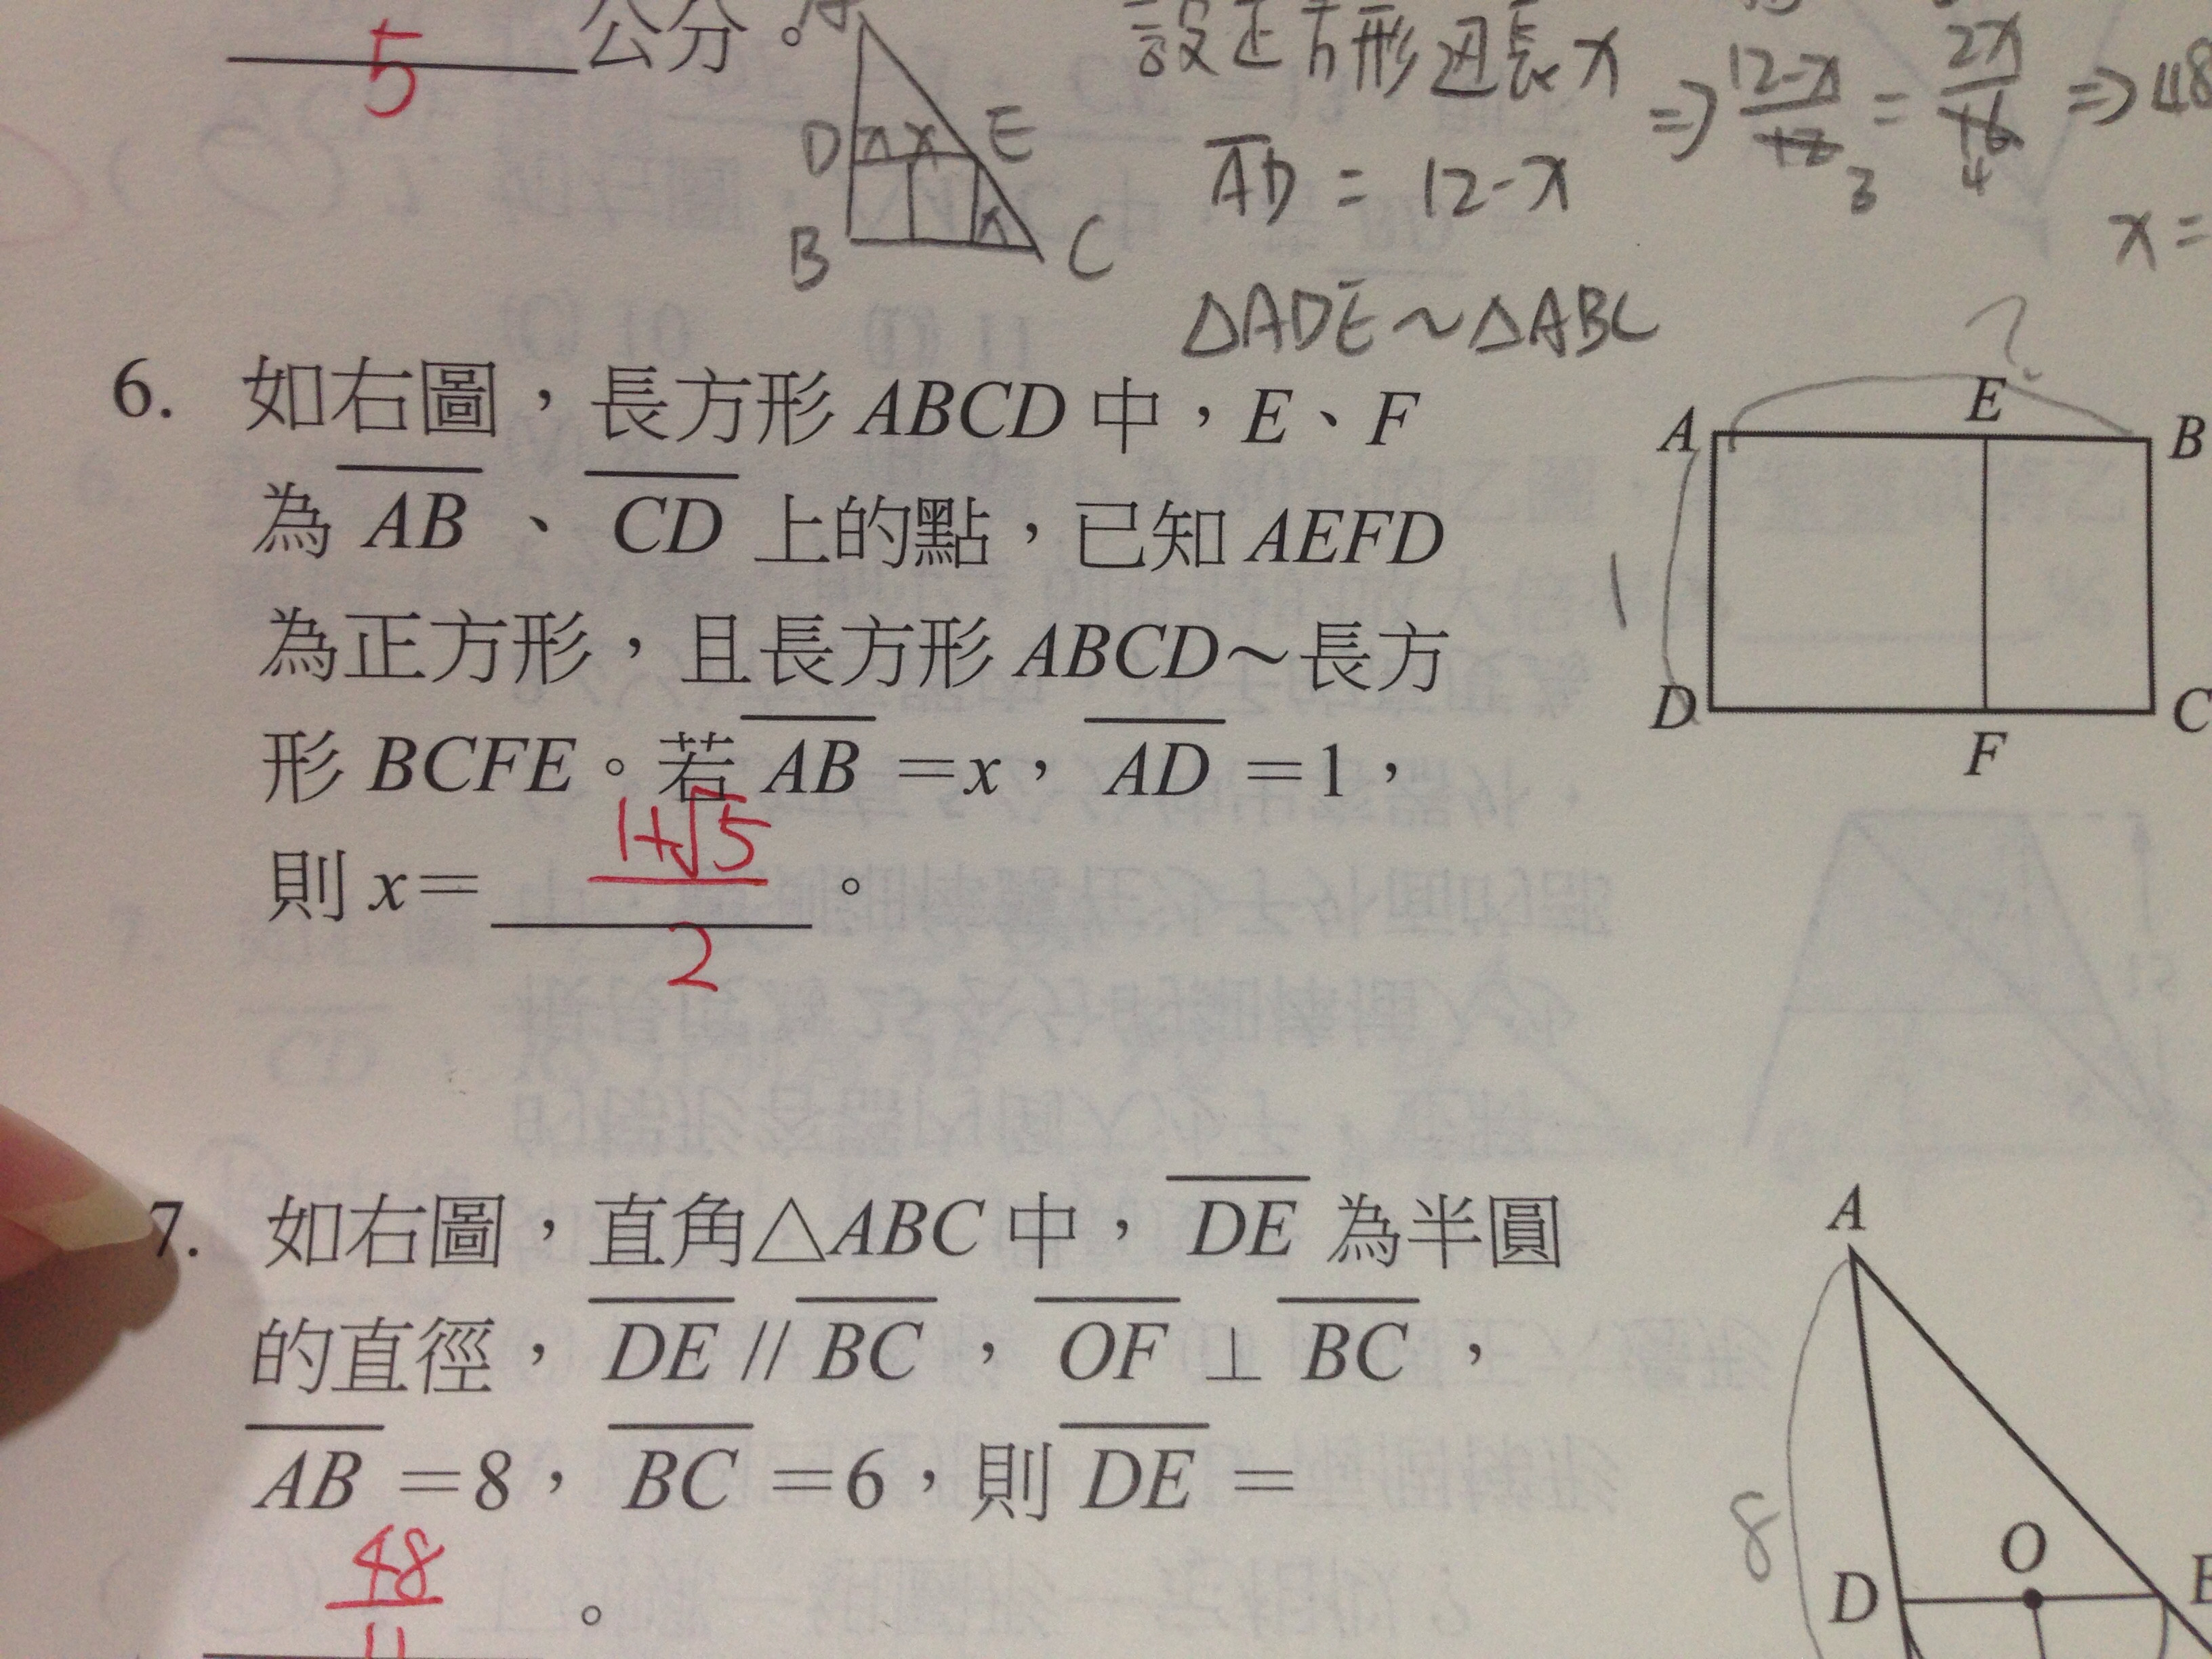 5 公分。
A
D x x E
B x C
設正方形边長 x
AD = 12-x
△ADE~△ABC
⇒ 12-x/12 = 2x/16 ⇒ 48
3 4
x =
6. 如右圖，長方形 ABCD 中，E、F
為 AB 、 CD 上的點，已知 AEFD
為正方形，且長方形 ABCD~長方
形 BCFE。若 AB =x， AD =1，
則 x= 1+√5/2 。
?
A E B
1
D F C
7. 如右圖，直角△ABC 中， DE 為半圓
的直徑， DE // BC ， OF ⊥ BC ，
AB =8， BC =6，則 DE =
48/11 。
A
8
D O E